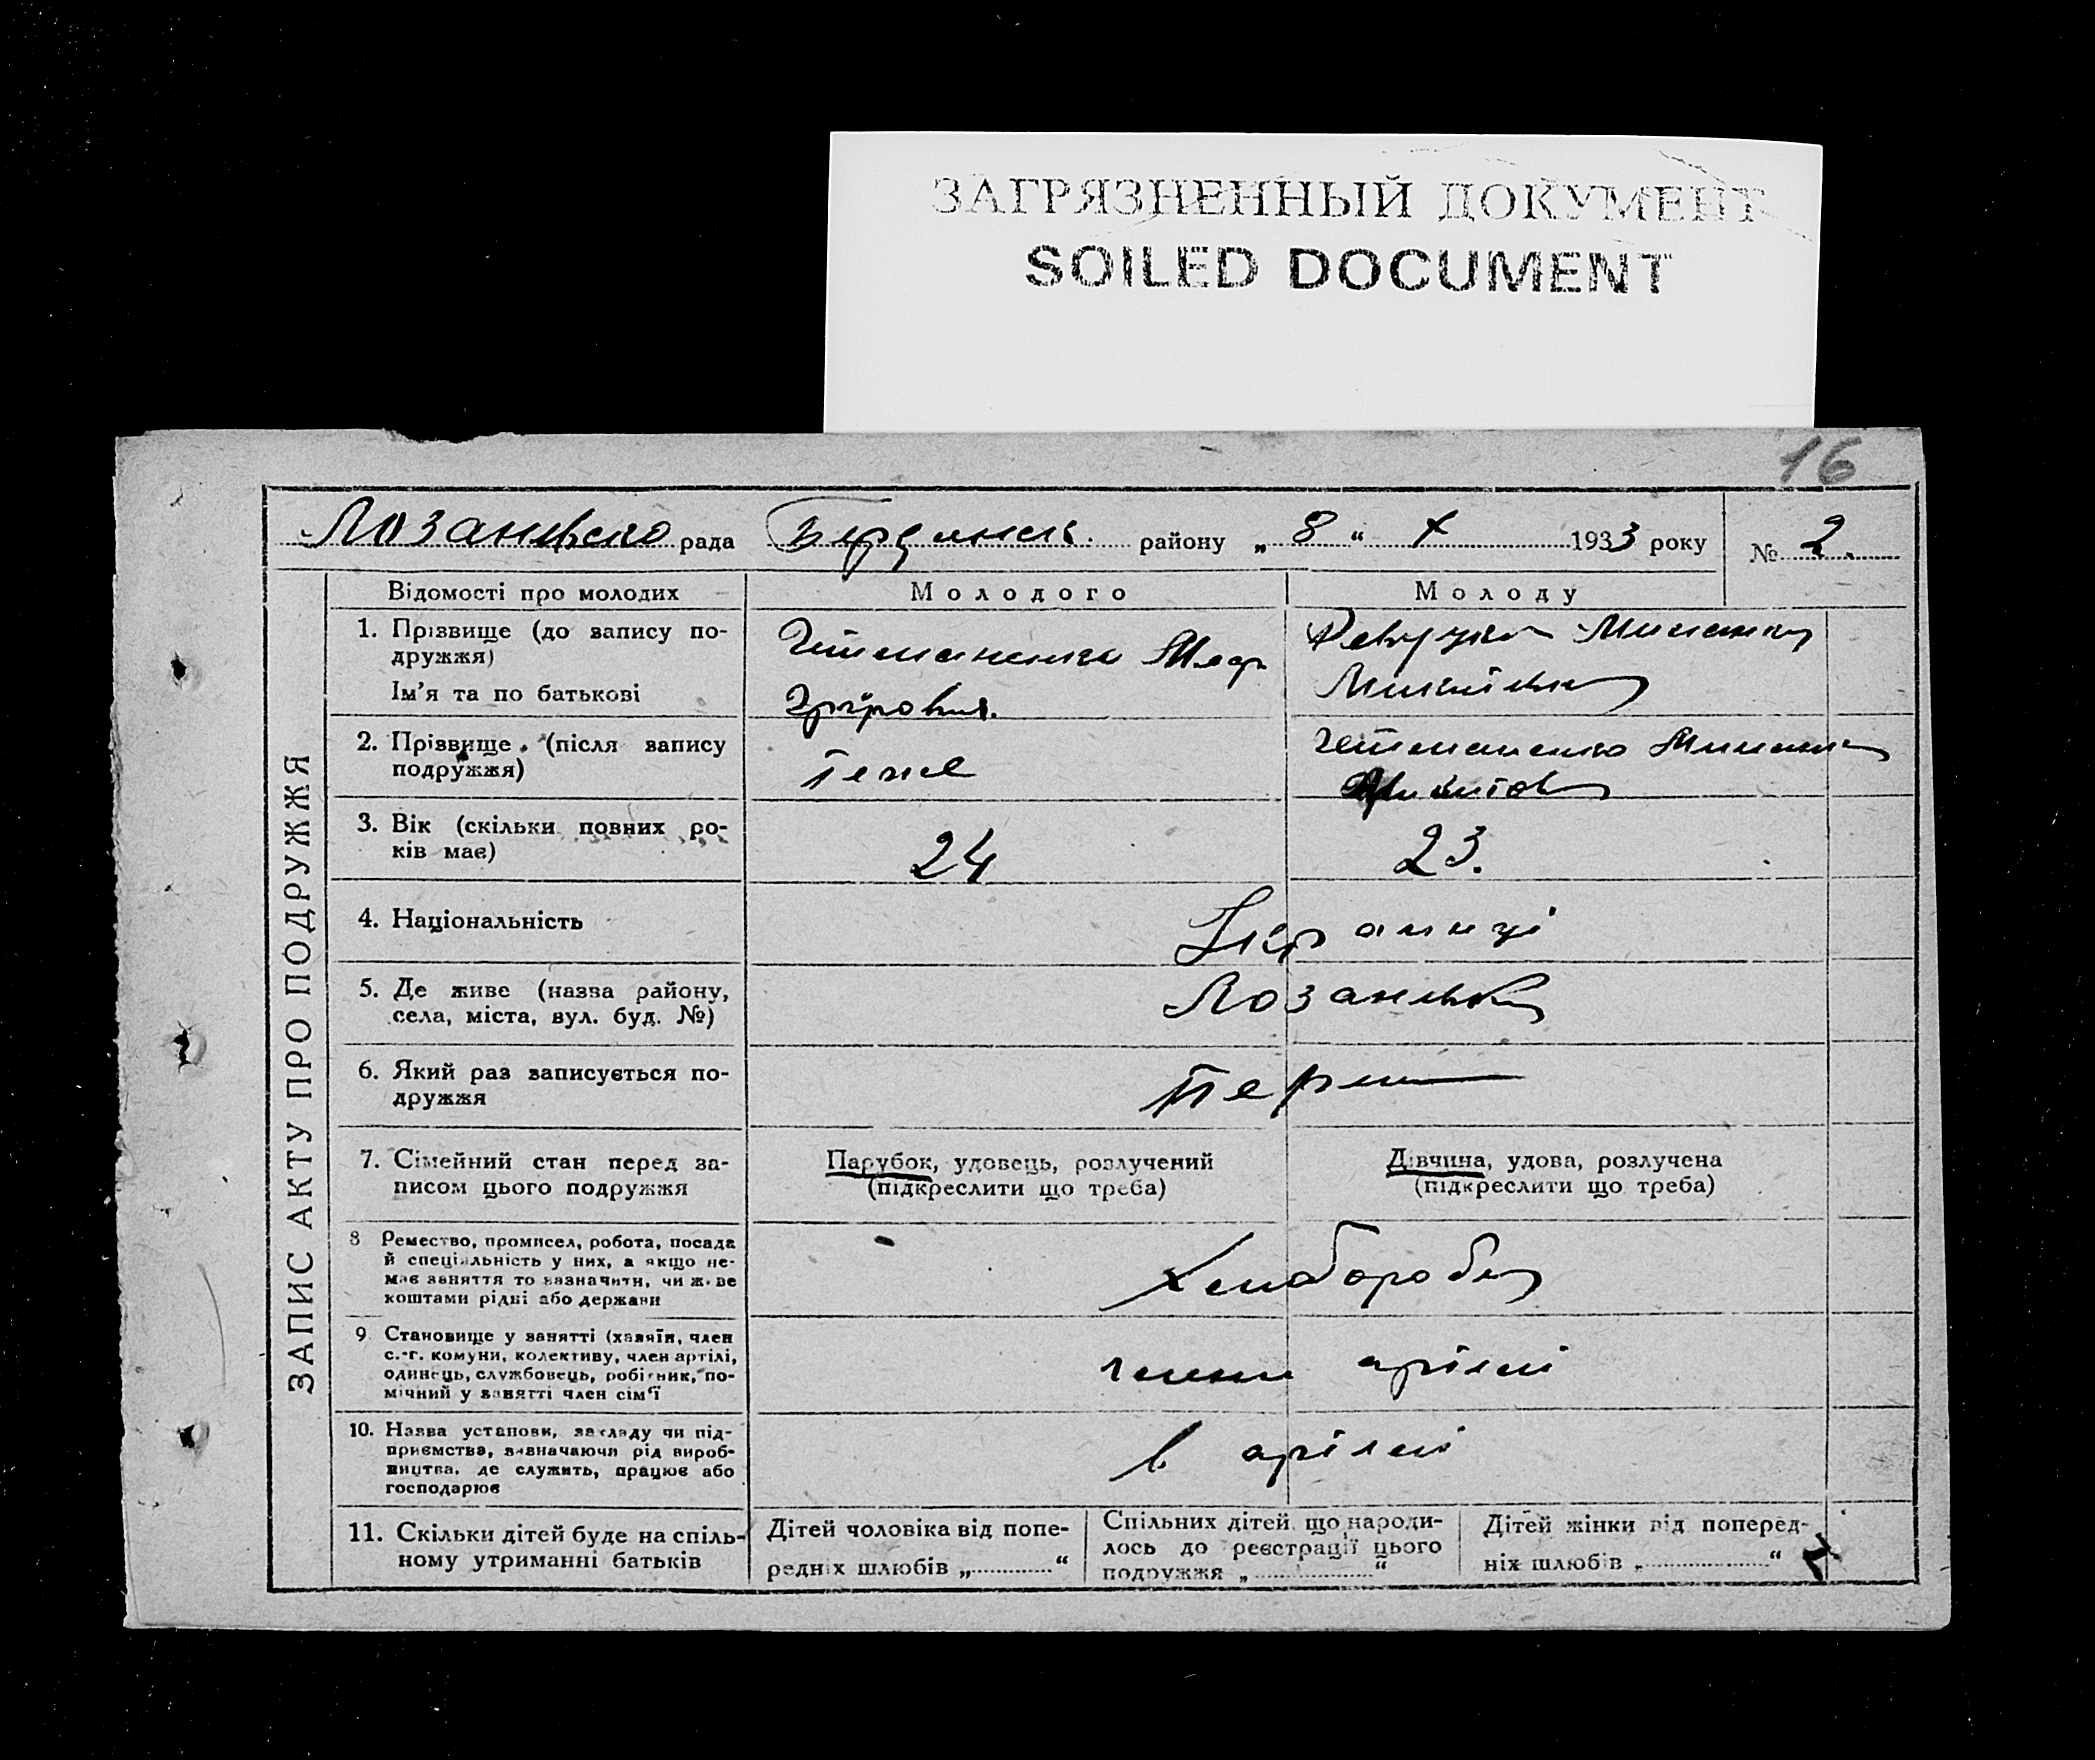 ЗАГРЯЗНЕННЫЙ ДОКУМЕНТ
SOILED DOCUMENT
16
рада району „ 8 “ X 1933 року № 2.
ЗАПИС АКТУ ПРО ПОДРУЖЖЯ
Відомості про молодих
Молодого
Молоду
1. Прізвище (до запису по-
дружжя)
Ім'я та по батькові
2. Прізвище (після запису
подружжя)
3. Вік (скільки повних ро-
ків має)
24
23.
4. Національність
5. Де живе (назва району,
села, міста, вул. буд. №)
6. Який раз записується по-
дружжя
Перш
7. Сімейний стан перед за-
писом цього подружжя
Парубок, удовець, розлучений
(підкреслити що треба)
Дівчина, удова, розлучена
(підкреслити що треба)
8 Ремество, промисел, робота, посада
й спеціяльність у них, а якщо не-
має заняття то зазначити, чи живе
коштами рідні або держави
Хлібороби
9 Становище у занятті (хазяїн, член
с.-г. комуни, колективу, член артілі,
одинець, службовець, робітник, по-
мічний у занятті член сім'ї
члени артілі
10. Назва установи, закладу чи під-
приємства, зазначаючи рід вироб-
ництва, де служить, працює або
господарює
в артілі
11. Скільки дітей буде на спіль-
ному утриманні батьків
Дітей чоловіка від попе-
редніх шлюбів „ “
Спільних дітей що народи-
лось до реєстрації цього
подружжя „ “
Дітей жінки від поперед-
ніх шлюбів „ “